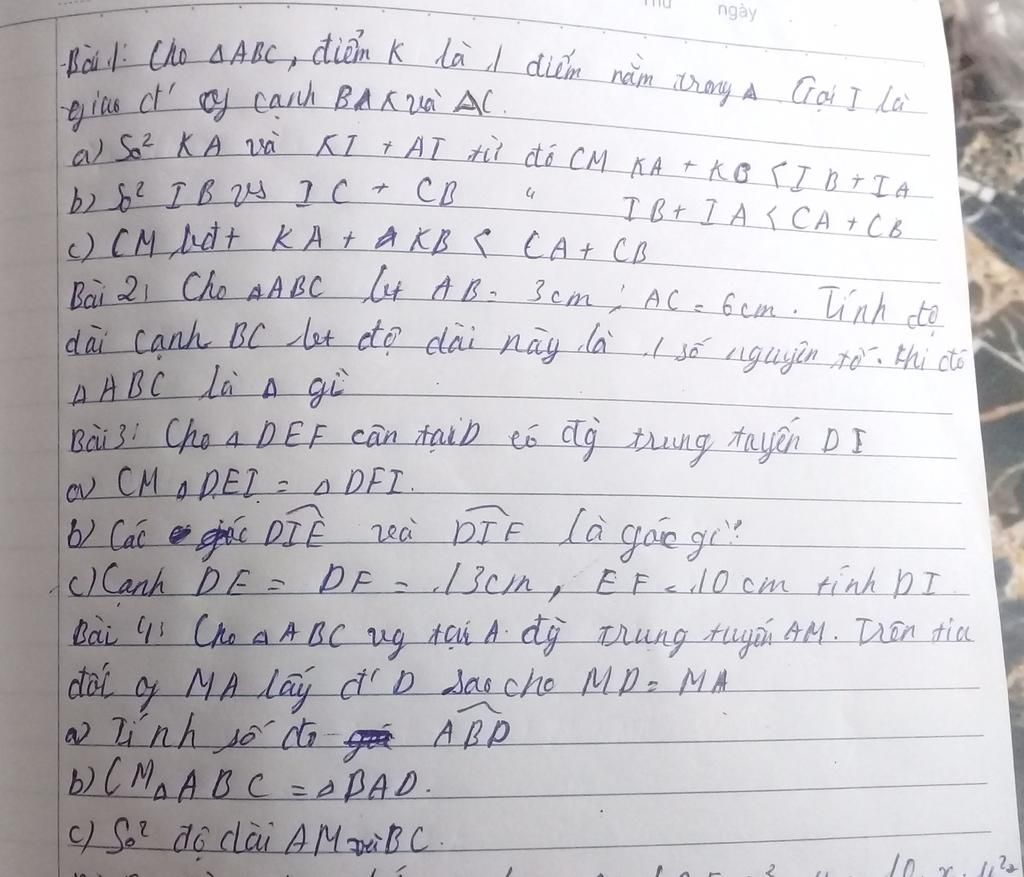 Thứ ngày
Bài 1: Cho ΔABC, điểm K là 1 điểm nằm trong Δ Gọi I là
giao đ' of cạnh BAK và AC.
a) So² KA và KI + AI từ đó CM KA + KB < IB + IA
b) So² IB vs IC + CB " IB + IA < CA + CB
c) CM bđt KA + KB < CA + CB
Bài 2: Cho ΔABC bt AB = 3cm; AC = 6cm. Tính độ
dài cạnh BC bt độ dài này là 1 số nguyên tố. Khi đó
ΔABC là Δ gì
Bài 3: Cho Δ DEF cân tại D có đg trung tuyến DI
a) CM Δ DEI = Δ DFI.
b) Các góc DIE và DIF là góc gì?
c) Cạnh DE = DF = 13cm, EF = 10 cm tính DI
Bài 4: Cho Δ ABC vg tại A. đg trung tuyến AM. Trên tia
đối of MA lấy đ' D sao cho MD = MA
a) Tính số đo ABD
b) CM Δ ABC = Δ BAD.
c) So² độ dài AM và BC.